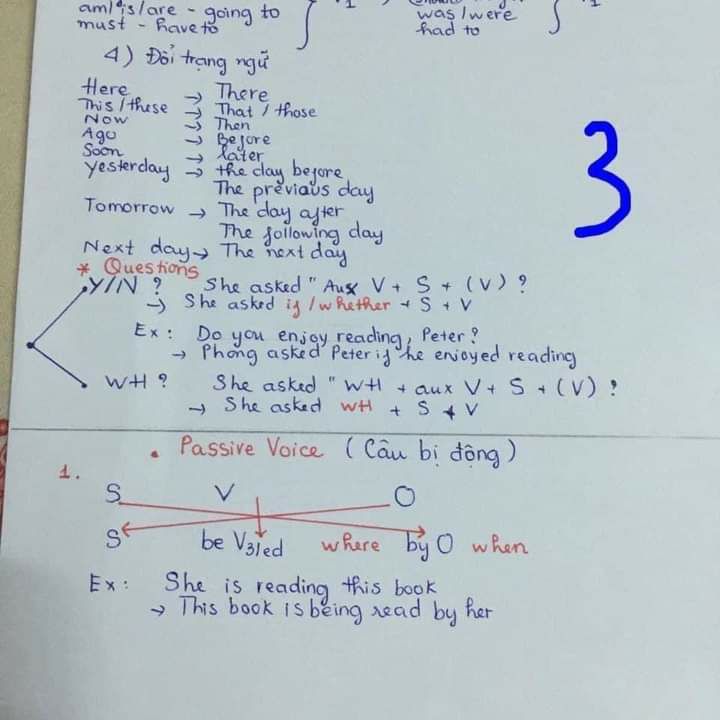 am/is/are - going to
was/were
must - have to
had to
4) Đổi trạng ngữ
Here → There
This/these → That / those
Now → Then
Ago → Before
Soon → later
Yesterday → the day before
The previous day
Tomorrow → The day after
The following day
Next day → The next day
3
* Questions
Y/N ? She asked " Aux V + S + (V) ?
→ She asked if / whether + S + V
Ex : Do you enjoy reading, Peter ?
→ Phong asked Peter if he enjoyed reading
WH ? She asked " WH + aux V + S + (V) ?
→ She asked WH + S + V
• Passive Voice ( Câu bị động )
1.
S V O
S be V3/ed where by O when
Ex : She is reading this book
→ This book is being read by her